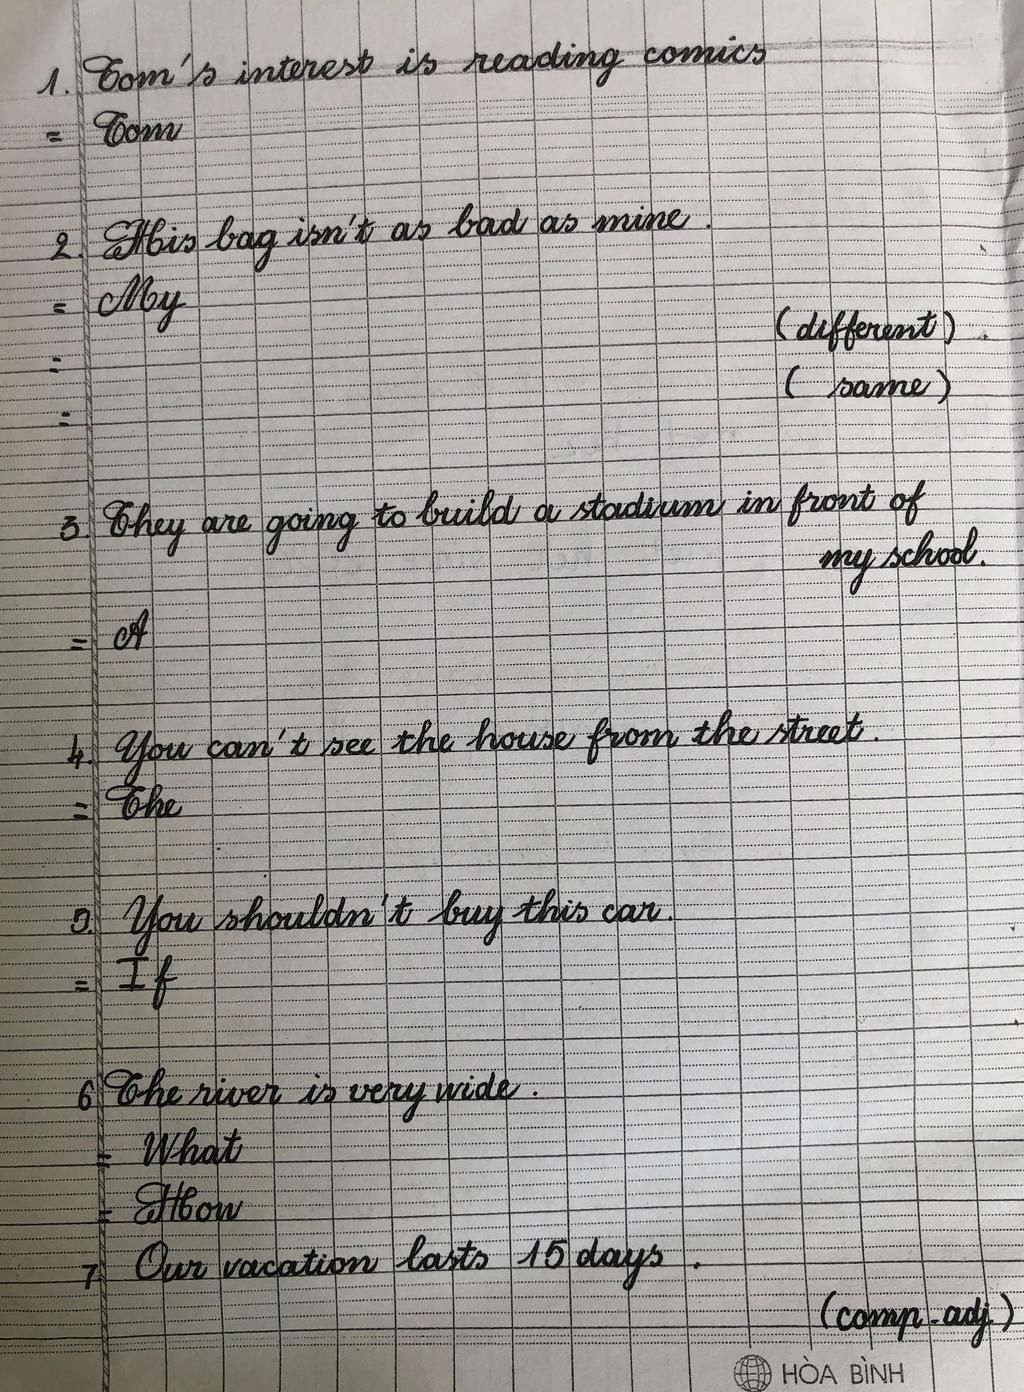 1. Tom's interest is reading comics
= Tom
2. His bag isn't as bad as mine.
= My
= (different).
= (same)
3. They are going to build a stadium in front of
my school.
= A
4. You can't see the house from the street.
= The
5. You shouldn't buy this car.
= If
6 The river is very wide.
= What
= How
7 Our vacation lasts 15 days.
(comp-adj.)
HÒA BÌNH